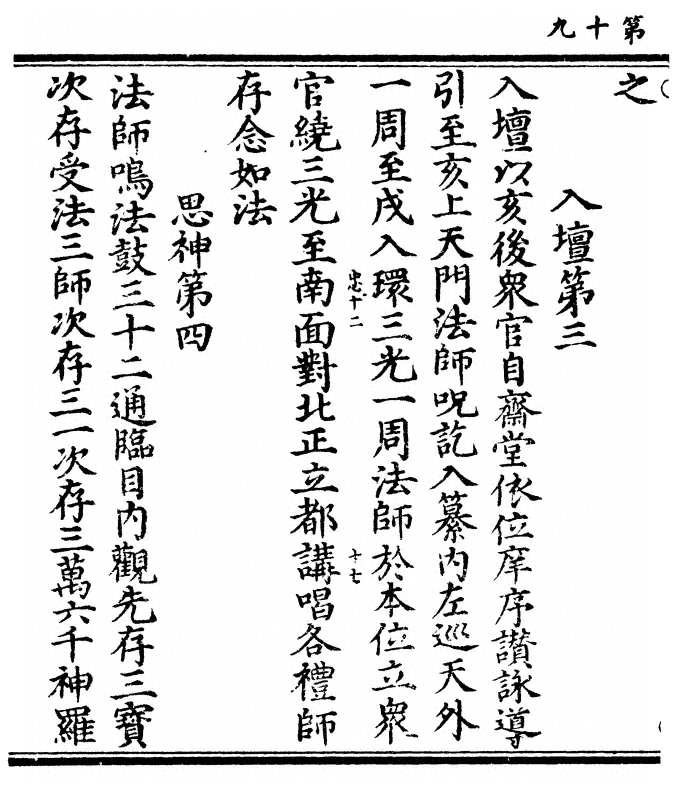 第十九
之
入壇第三
入壇以亥後衆官自齋堂依位庠序讃詠導
引至亥上天門法師呪訖入纂内左巡天外
一周至戌入環三光一周法師於本位立衆
忠十二
十七
官繞三光至南面對北正立都講唱各禮師
存念如法
思神第四
法師鳴法鼓三十二通臨目内觀先存三寶
次存受法三師次存三一次存三萬六千神羅